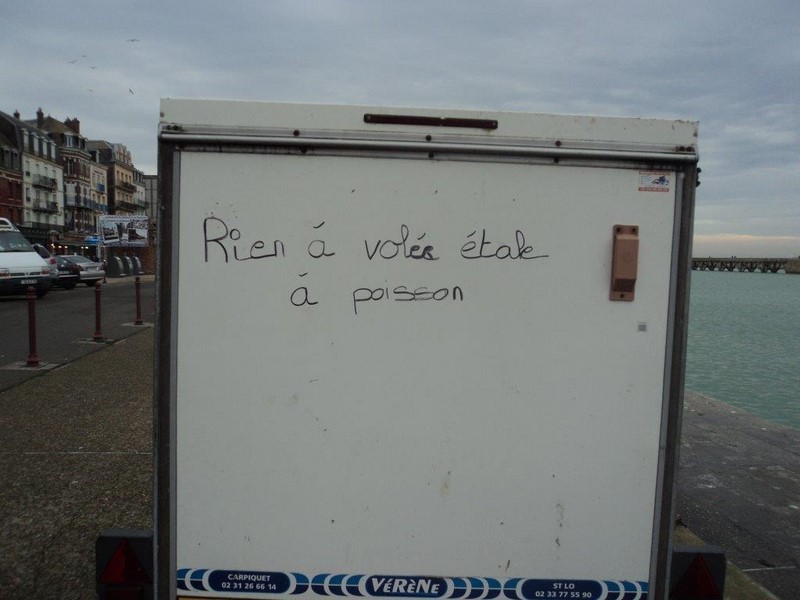 Rien á volée étale
á poisson
CARPIQUET
02 31 26 66 14
VéRèNe
ST LO
02 33 77 55 90